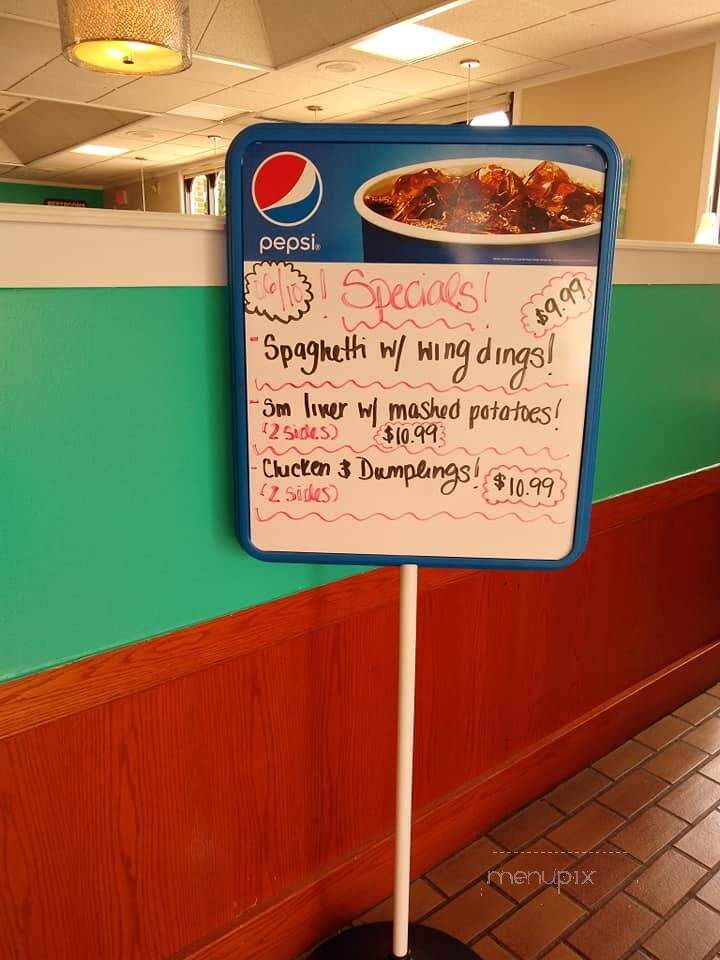 pepsi
6/10 ! Specials!
$9.99
- Spaghetti w/ wing dings!
- Sm liver w/ mashed potatoes!
(2 sides) $10.99
- Chicken & Dumplings!
(2 sides) $10.99
menupix